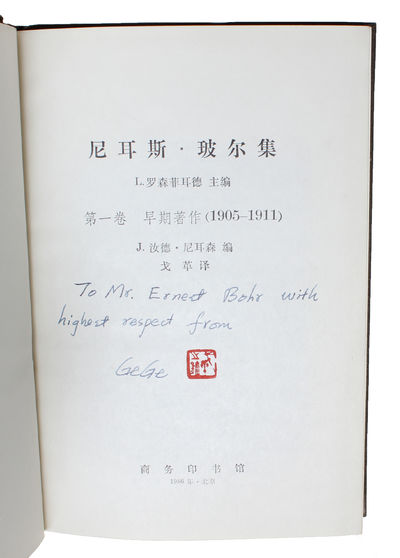 尼耳斯·玻尔集
L.罗森菲耳德 主编
第一卷 早期著作(1905–1911)
J.汝德·尼耳森 编
戈革译
To Mr. Ernest Bohr with
highest respect from
GeGe
商务印书馆
1986年·北京